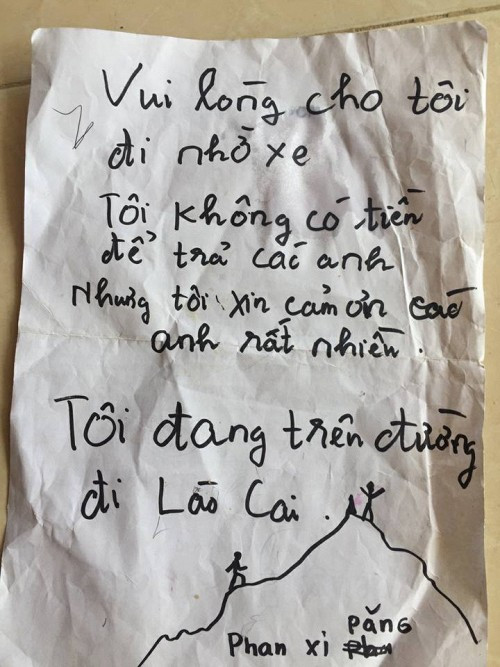 Vui lòng cho tôi
đi nhờ xe
Tôi không có tiền
để trả các anh
Nhưng tôi xin cảm ơn các
anh rất nhiền.
Tôi đang trên đường
đi Lào Cai.
Phan xi PĂNG